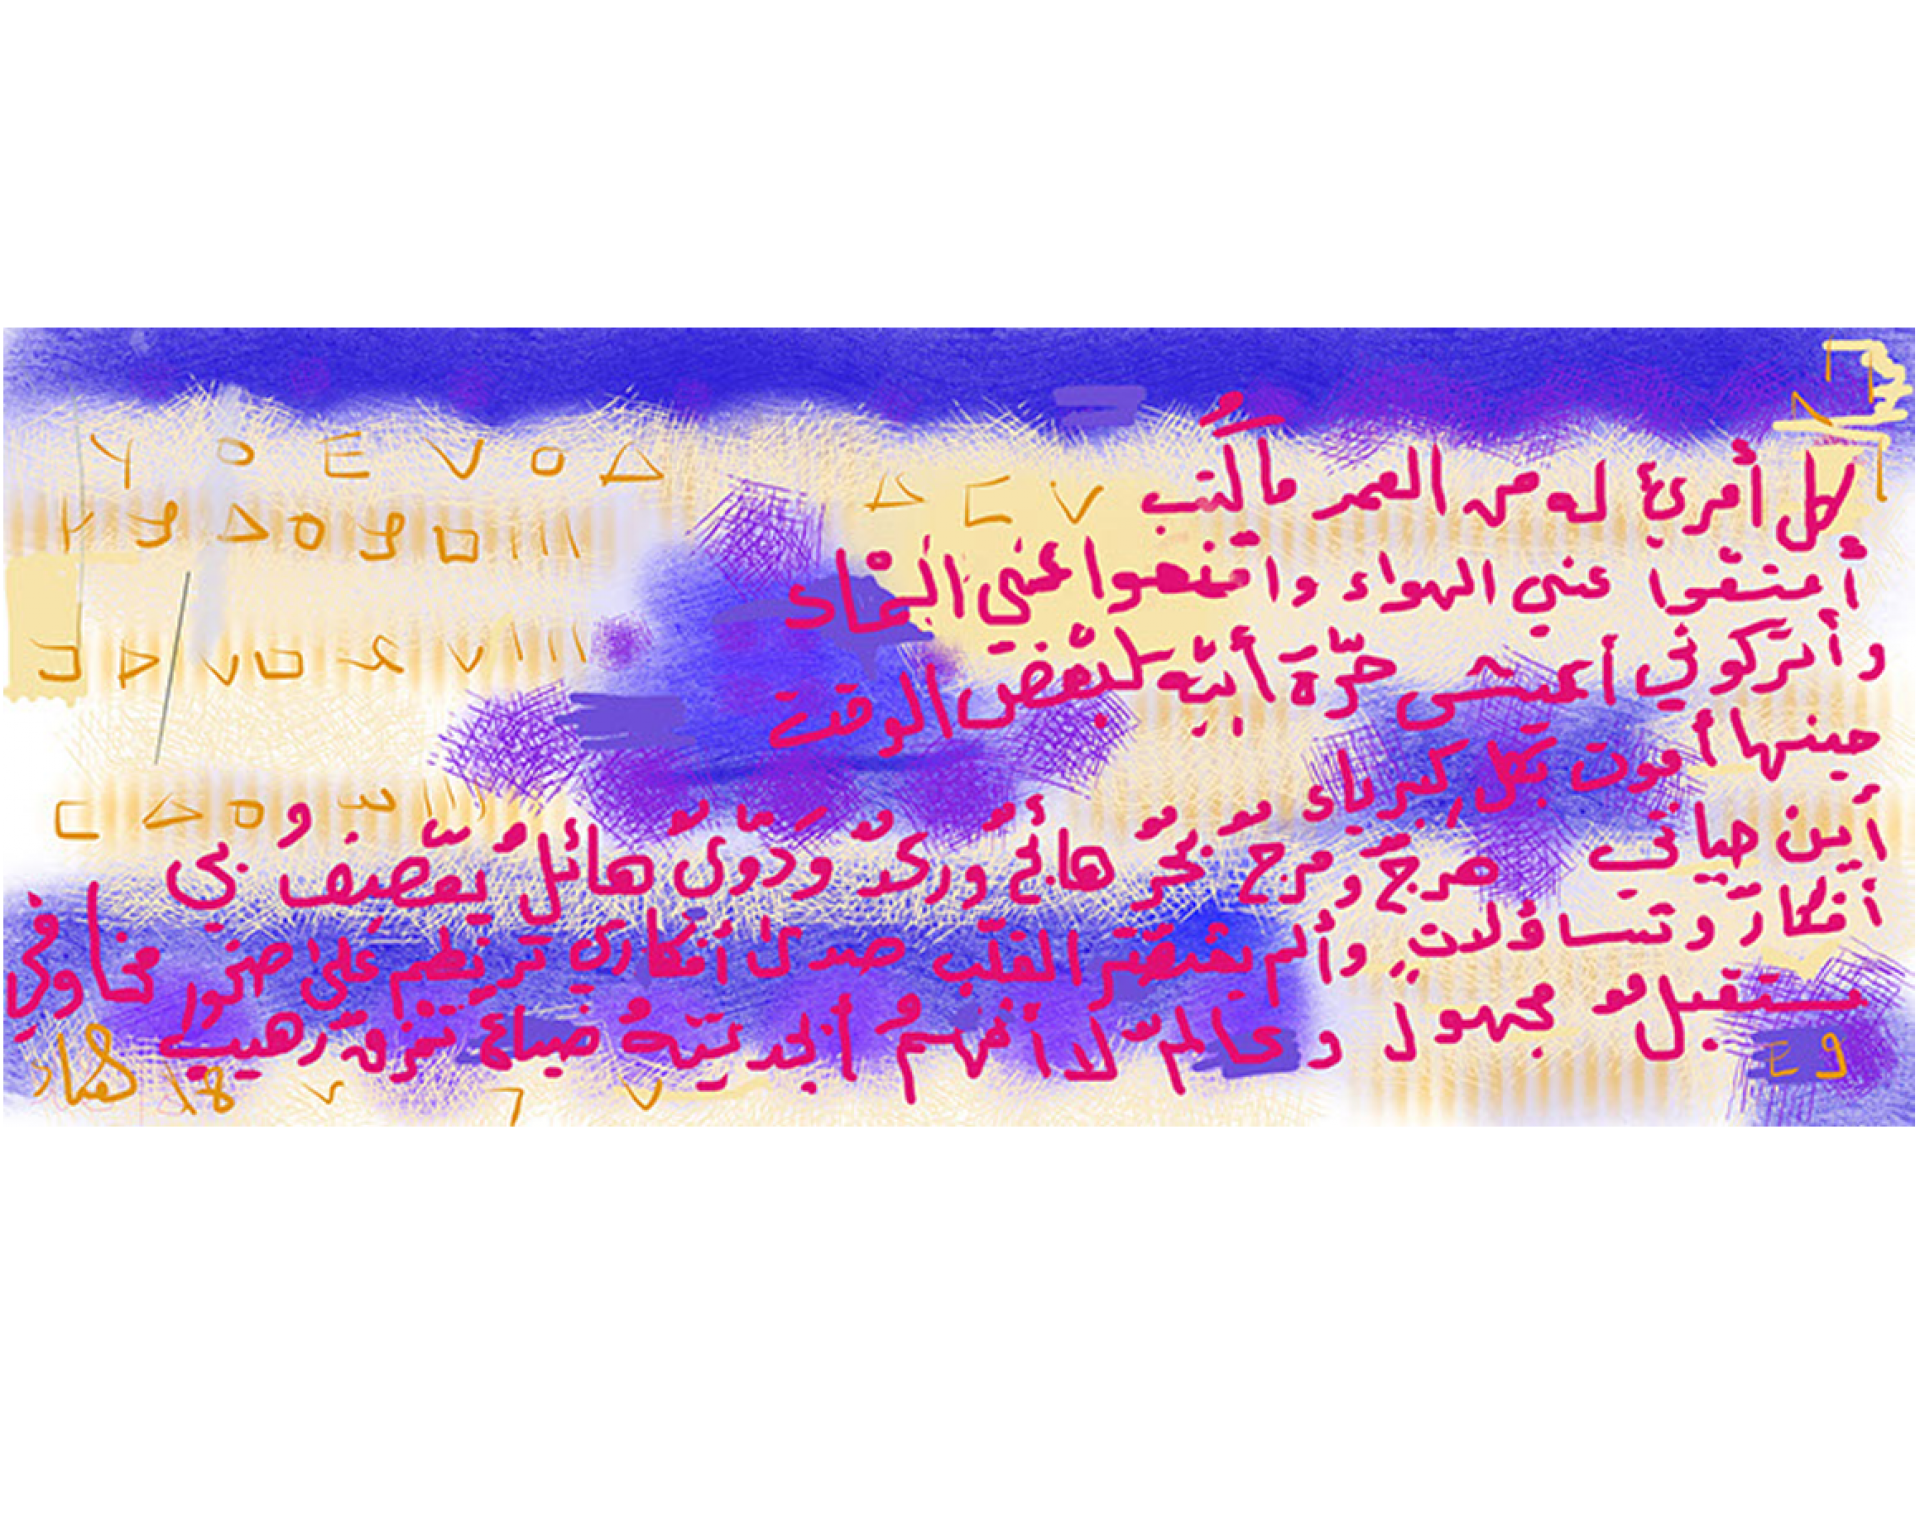 كل أمرئ له من العمر ما كُتب
أعتقوا عني الهواء وامنعوا عني الماء
وأتركوني أعيش حرّة أبيّه لبعض الوقت
حينها أموت بكل كبرياء
أين حياتي هرجٌ ومرج بحرٌ هائجٌ وركدٌ ودويٌ هائلٌ يعصف بي
أفكارٌ وتساؤلات وألم يعتصر القلب صدى أفكاري ترتطم على صخور مخاوفي
مستقبل مجهول وعالم لا أفهمُ أبجديتهُ ضياع تمزق رهيب
E 9
18